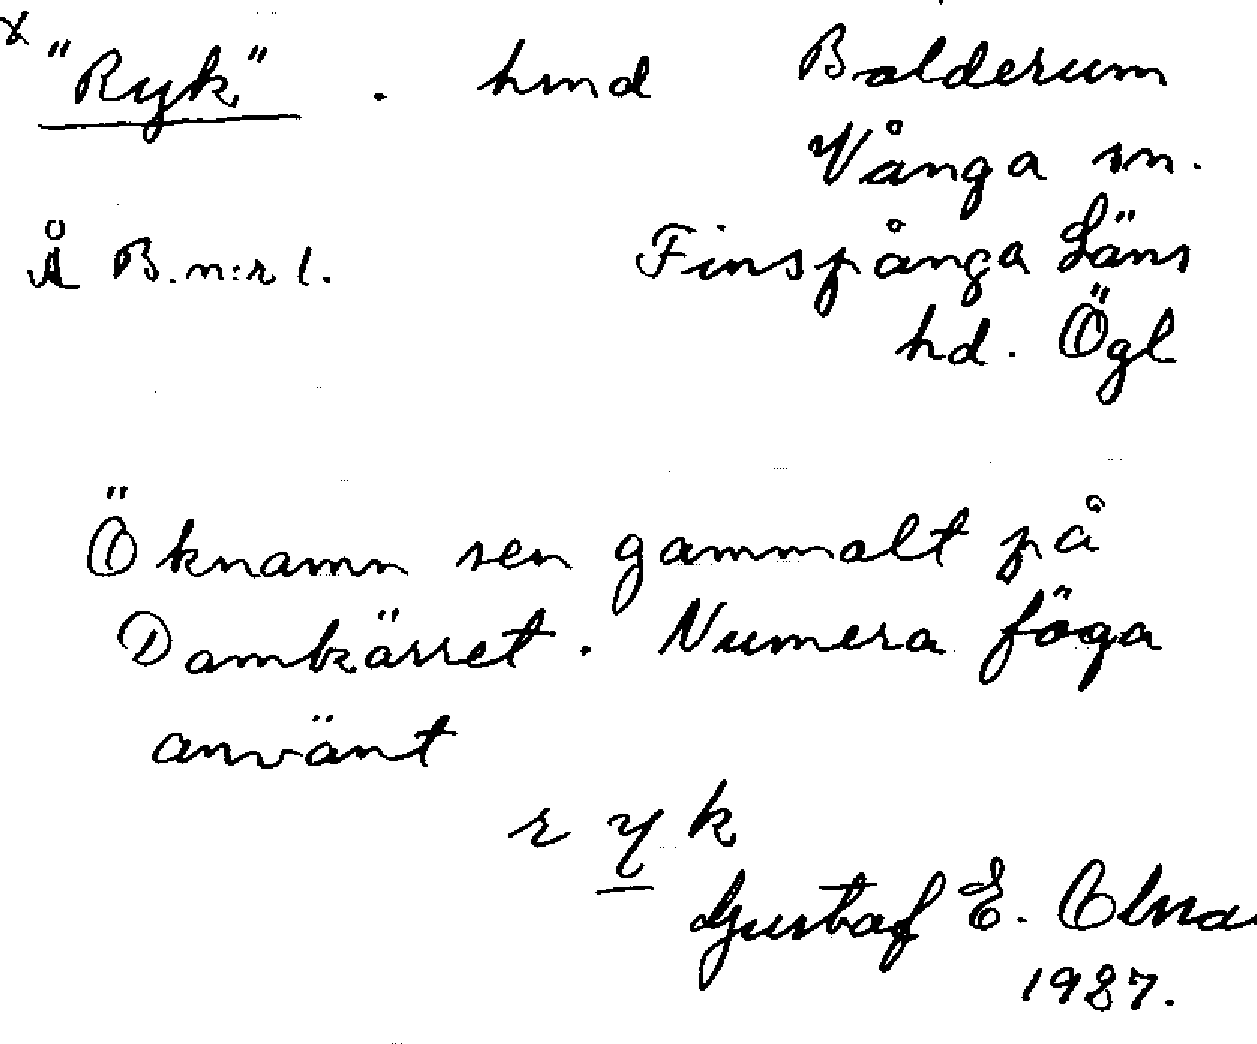 x "Ryk" . hmd Balderum
Vånga sn.
Å B.n:r 1. Finspånga Läns
hd. Ögl
Öknamn sen gammalt på
Damkärret. Numera föga
använt
r y k
Gustaf E.
1987.